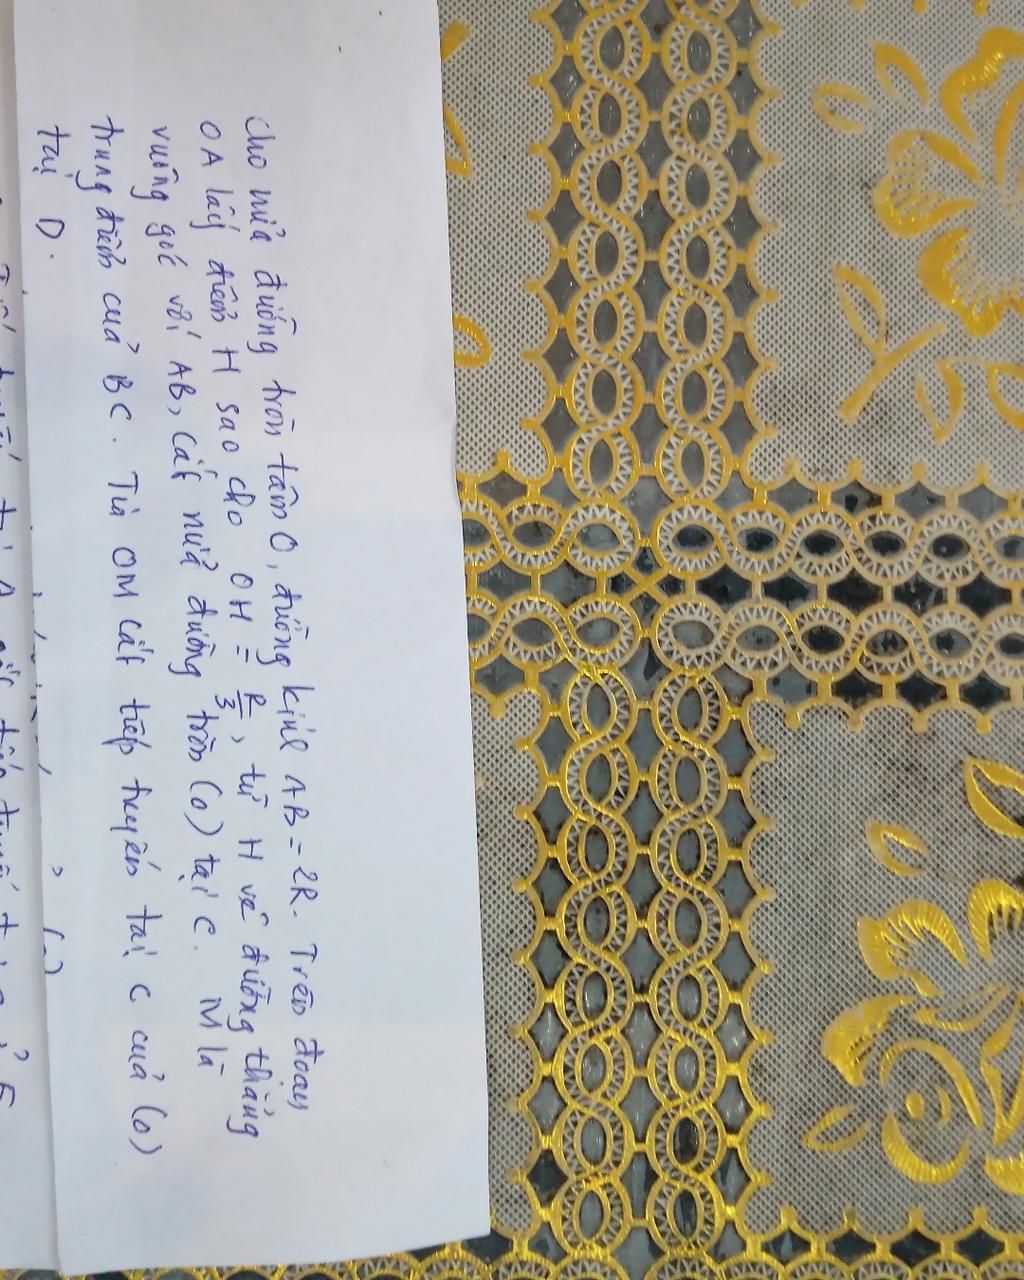 Cho nửa đường tròn tâm O, đường kính AB = 2R. Trên đoạn
OA lấy điểm H sao cho OH = R/3, từ H vẽ đường thẳng
vuông góc với AB, cắt nửa đường tròn (O) tại C. M là
trung điểm của BC. Tia OM cắt tiếp tuyến tại C của (O)
tại D.